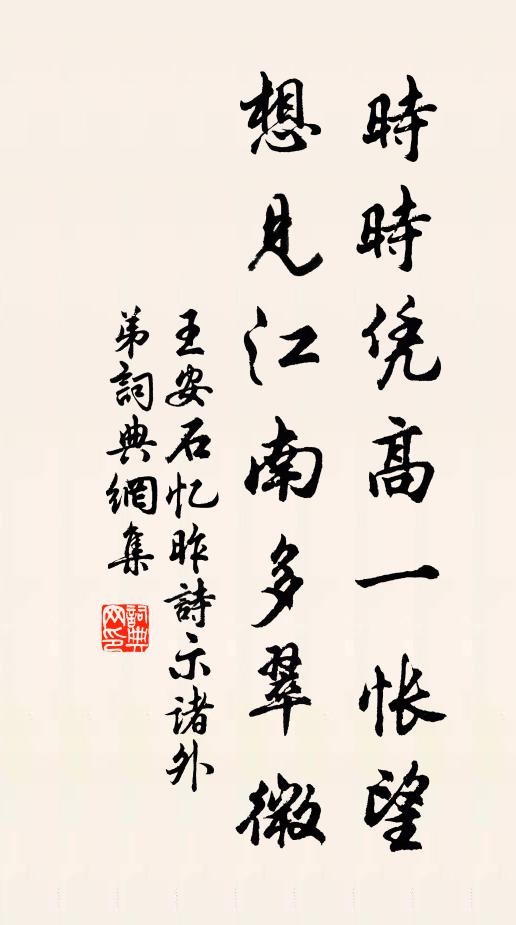 時時凭高一怅望
想見江南多翠微
王安石忆昨詩示诸外
弟詞典網集
詞典
网印